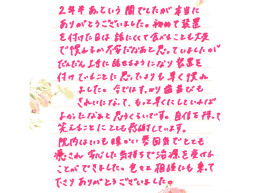 2年半あという間でしたが本当に
ありがとうございました。初めて装置
を付けた日は話しにくくて食べることも大変
で慣れるか不安だなあと思っていましたが
だんだん上手に話せるようになり装置を
付けていることに思ったよりも早く慣れ
ました。今ではすっかり歯並びも
きれいになって、もっと早くにしといれば
よかったなぁと思うくらいです。自信を持って
笑えることにとても感謝しています。
院内はいつも暖かい雰囲気でとても
癒され 安心した気持ちで治療を受ける
ことができました。色々と相談にも乗って
下さりありがとうございました。